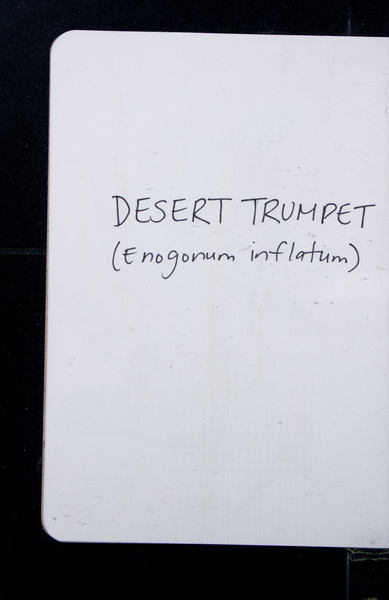 DESERT TRUMPET
(Enogonum inflatum)